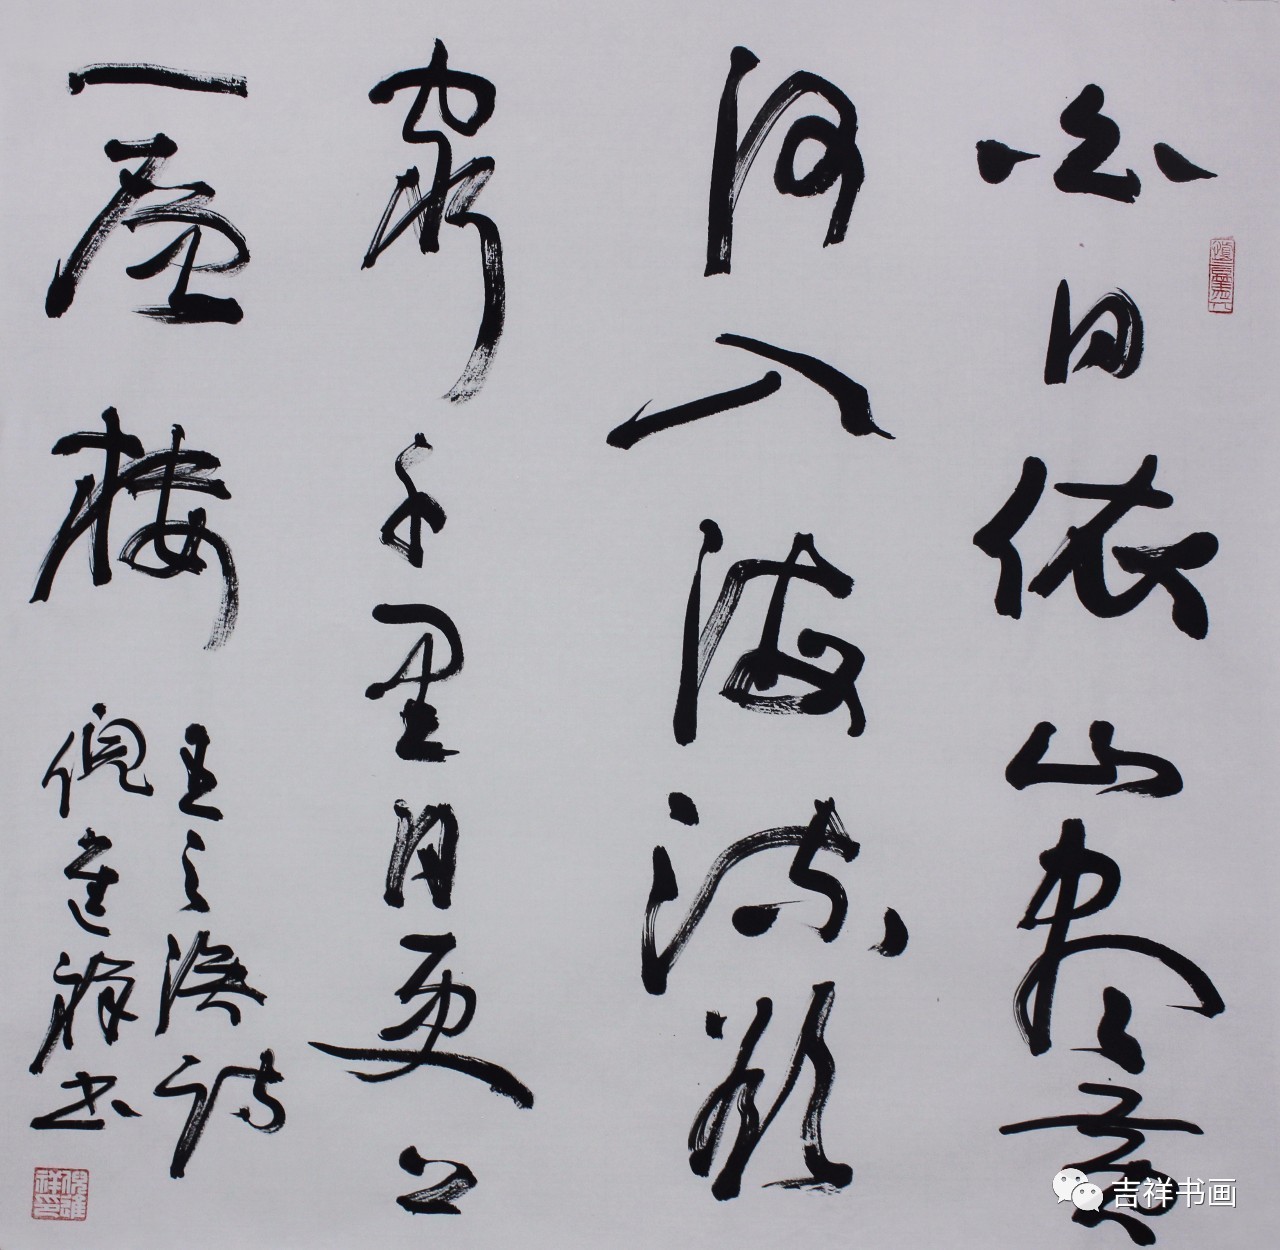 白日依山尽黄
河入海流欲
穷千里目更上
一层楼
王之涣诗
倪进祥书
吉祥书画